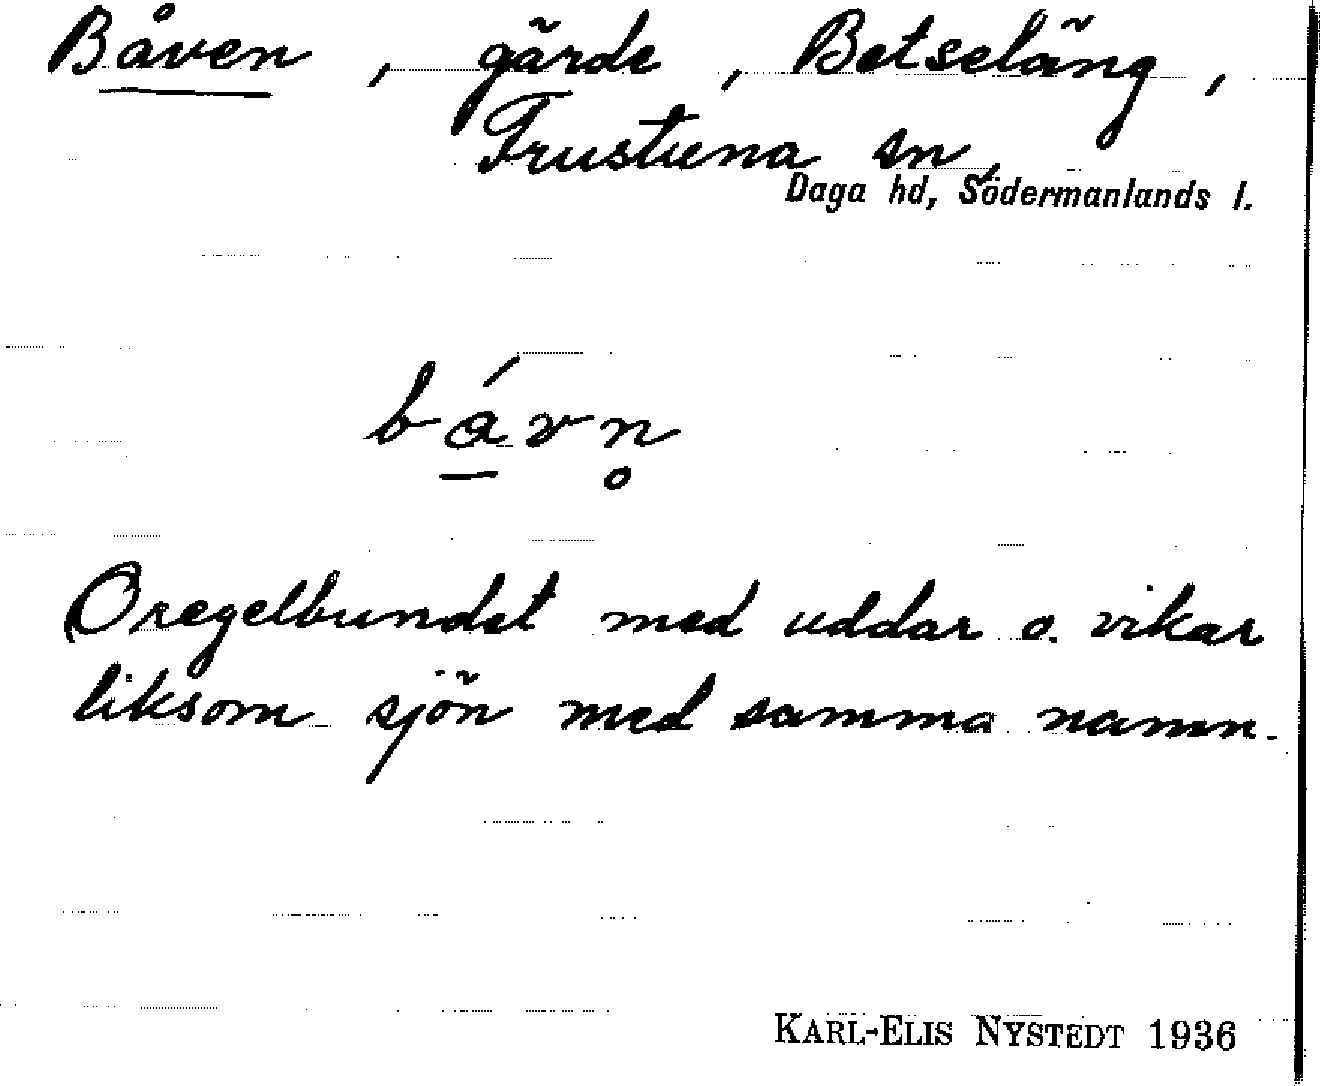 Båven, gärde, Betseläng,
Frustuna sn,
Daga hd, Södermanlands l.
bá̱vn̥
Oregelbundet med uddar o. vikar
liksom sjön med samma namn.
KARL-ELIS NYSTEDT 1936